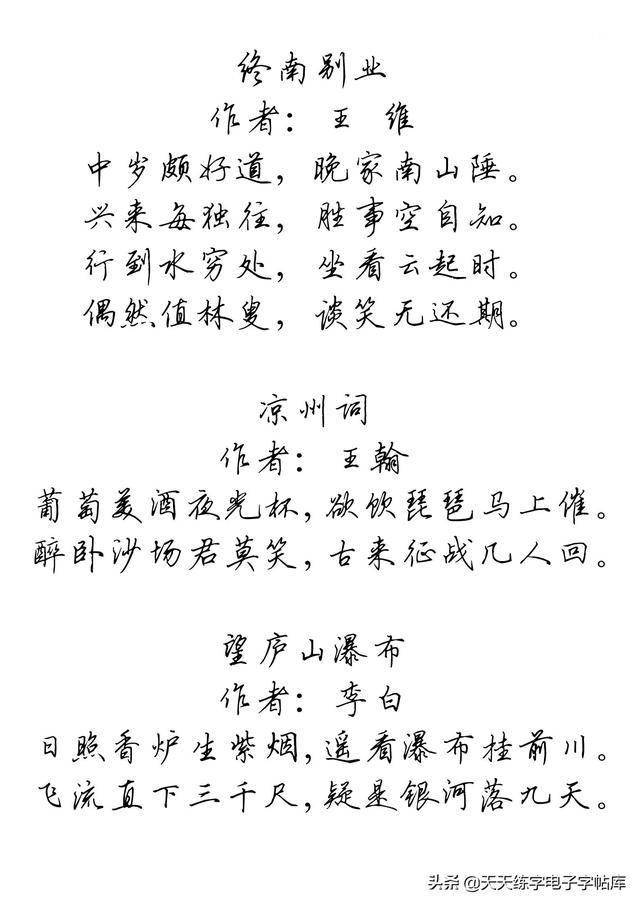 终南别业
作者：王 维
中岁颇好道，晚家南山陲。
兴来每独往，胜事空自知。
行到水穷处，坐看云起时。
偶然值林叟，谈笑无还期。
凉州词
作者：王翰
葡萄美酒夜光杯，欲饮琵琶马上催。
醉卧沙场君莫笑，古来征战几人回。
望庐山瀑布
作者：李白
日照香炉生紫烟，遥看瀑布挂前川。
飞流直下三千尺，疑是银河落九天。
头条 @天天练字电子字帖库